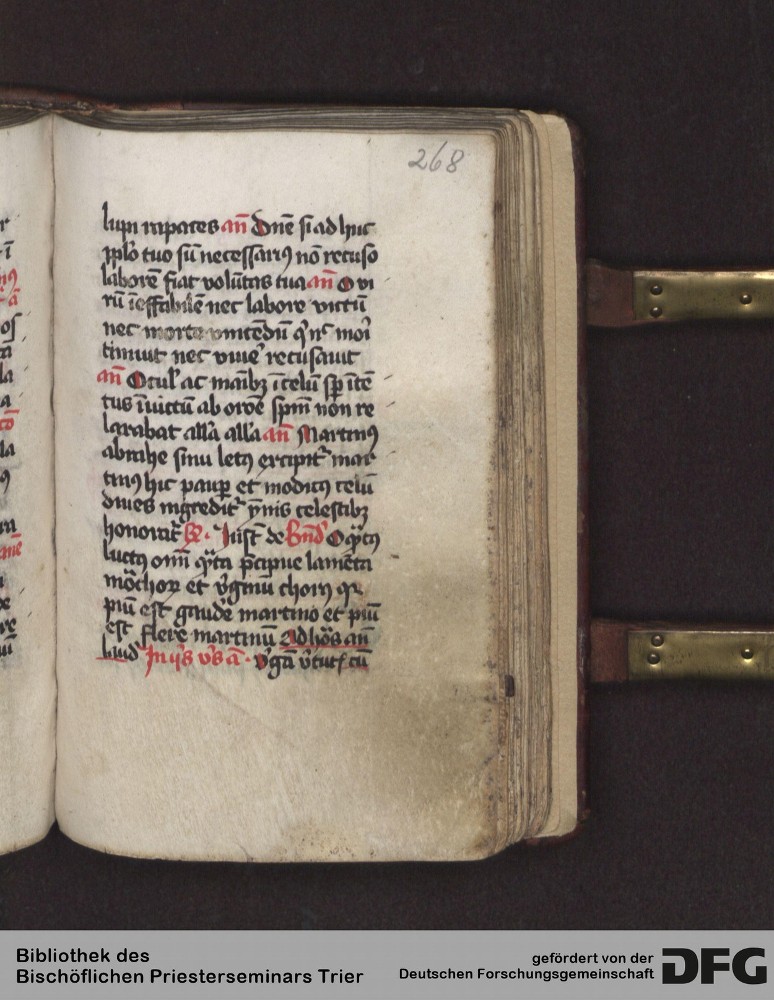 268
lupi rapaces an̄ Dn̄e si adhuc
pp̄lo tuo sū necessariꝰ nō recuso
laborē fiat volūtas tua an̄ O vi
rū īeffabilē nec labore victū
nec morte vincēdū qͥ nͨ mori
timuit nec viuē recusauit
an̄ Oculͥ ac maībꝫ ī celū sp̄ ītē
tus īuictū ab oroē sp̄m non re
laxabat alla alla an̄ Martinꝰ
abrahe sinu letꝰ excipitᷣ mar
tinꝰ hic paup̄ et modicꝰ celū
diues ingreditᷣ ymnis celestibꝫ
honoratᷣ R̄. Just̄ de Bn̄d O qͣtꝰ
luctꝰ om̄ qͣta p̄cipue lamēta
mōchoꝝ et v̄ginū chorꝰ qꝛ
piū est gaudē martino et piū
est flere martinū Ad hōs an̄
laud In ijs v̄s a. v̄ga v̄tutꝭ cū
Bibliothek des
Bischöflichen Priesterseminars Trier
gefördert von der
Deutschen Forschungsgemeinschaft
DFG